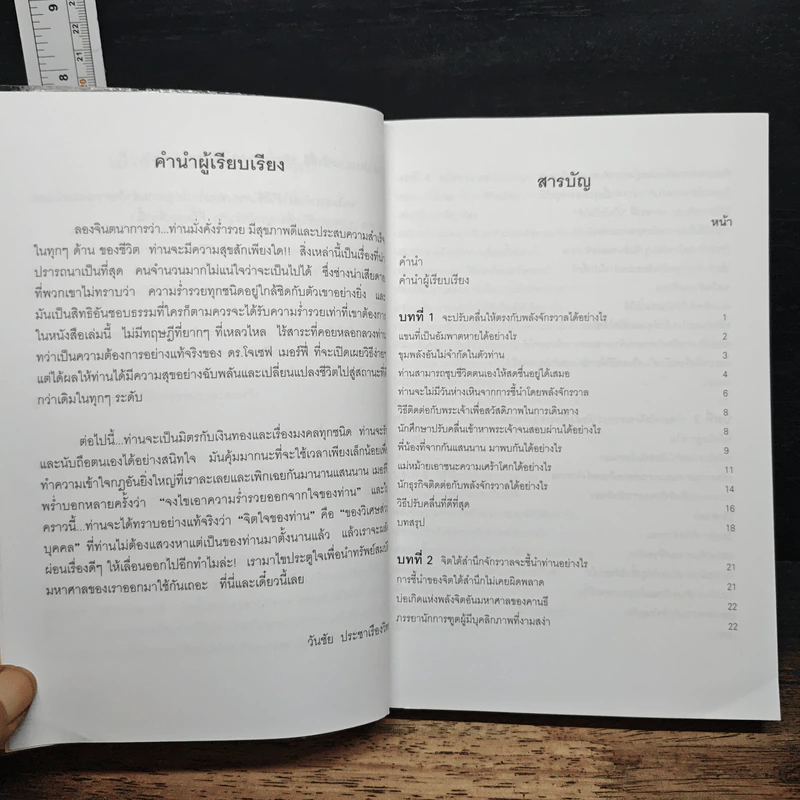 9
8
22
21
20
คำนำผู้เรียบเรียง
ลองจินตนาการว่า...ท่านมั่งคั่งร่ำรวย มีสุขภาพดีและประสบความสำเร็จ
ในทุกๆ ด้าน ของชีวิต ท่านจะมีความสุขสักเพียงใด!! สิ่งเหล่านี้เป็นเรื่องที่น่า
ปรารถนาเป็นที่สุด คนจำนวนมากไม่แน่ใจว่าจะเป็นไปได้ ซึ่งช่างน่าเสียดาย
ที่พวกเขาไม่ทราบว่า ความร่ำรวยทุกชนิดอยู่ใกล้ชิดกับตัวเขาอย่างยิ่ง และ
มันเป็นสิทธิอันชอบธรรมที่ใครก็ตามควรจะได้รับความร่ำรวยเท่าที่เขาต้องการ
ในหนังสือเล่มนี้ ไม่มีทฤษฎีที่ยากๆ ที่เหลวไหล ไร้สาระที่คอยหลอกลวงท่าน
ทว่าเป็นความต้องการอย่างแท้จริงของ ดร.โจเซฟ เมอร์ฟี่ ที่จะเปิดเผยวิธีง่ายๆ
แต่ได้ผลให้ท่านได้มีความสุขอย่างฉับพลันและเปลี่ยนแปลงชีวิตไปสู่สถานะที่ดี
กว่าเดิมในทุกๆ ระดับ
ต่อไปนี้...ท่านจะเป็นมิตรกับเงินทองและเรื่องมงคลทุกชนิด ท่านจะรัก
และนับถือตนเองได้อย่างสนิทใจ มันคุ้มมากกนะที่จะใช้เวลาเพียงเล็กน้อยเพื่อ
ทำความเข้าใจกฎอันยิ่งใหญ่ที่เราละเลยและเพิกเฉยกันมานานแสนนาน เมอร์ฟี่
พร่ำบอกหลายครั้งว่า “จงไขเอาความร่ำรวยออกจากใจของท่าน” และใน
คราวนี้...ท่านจะได้ทราบอย่างแท้จริงว่า “จิตใจของท่าน” คือ “ของวิเศษส่วน
บุคคล” ที่ท่านไม่ต้องแสวงหาแต่เป็นของท่านมาตั้งนานแล้ว แล้วเราจะผลัด
ผ่อนเรื่องดีๆ ให้เลื่อนออกไปอีกทำไมล่ะ! เรามาไขประตูใจเพื่อนำทรัพย์สมบัติ
มหาศาลของเราออกมาใช้กันเถอะ ที่นี่และเดี๋ยวนี้เลย
วันชัย ประชาเรืองวิทย์
สารบัญ
หน้า
คำนำ
คำนำผู้เรียบเรียง
บทที่ 1 จะปรับคลื่นให้ตรงกับพลังจักรวาลได้อย่างไร 1
แขนที่เป็นอัมพาตหายได้อย่างไร 2
ขุมพลังอันไม่จำกัดในตัวท่าน 3
ท่านสามารถชุบชีวิตตนเองให้สดชื่นอยู่ได้เสมอ 4
ท่านจะไม่มีวันห่างเหินจากการชี้นำโดยพลังจักรวาล 6
วิธีติดต่อกับพระเจ้าเพื่อสวัสดิภาพในการเดินทาง 8
นักศึกษาปรับคลื่นเข้าหาพระเจ้าจนสอบผ่านได้อย่างไร 8
พี่น้องที่จากกันแสนนาน มาพบกันได้อย่างไร 9
แม่หม้ายเอาชนะความเศร้าโศกได้อย่างไร 11
นักธุรกิจติดต่อกับพลังจักรวาลได้อย่างไร 14
วิธีปรับคลื่นที่ดีที่สุด 16
บทสรุป 18
บทที่ 2 จิตใต้สำนึกจักรวาลจะชี้นำท่านอย่างไร 21
การชี้นำของจิตใต้สำนึกไม่เคยผิดพลาด 21
บ่อเกิดแห่งพลังจิตอันมหาศาลของคานธี 22
ภรรยานักการฑูตผู้มีบุคลิกภาพที่งามสง่า 22